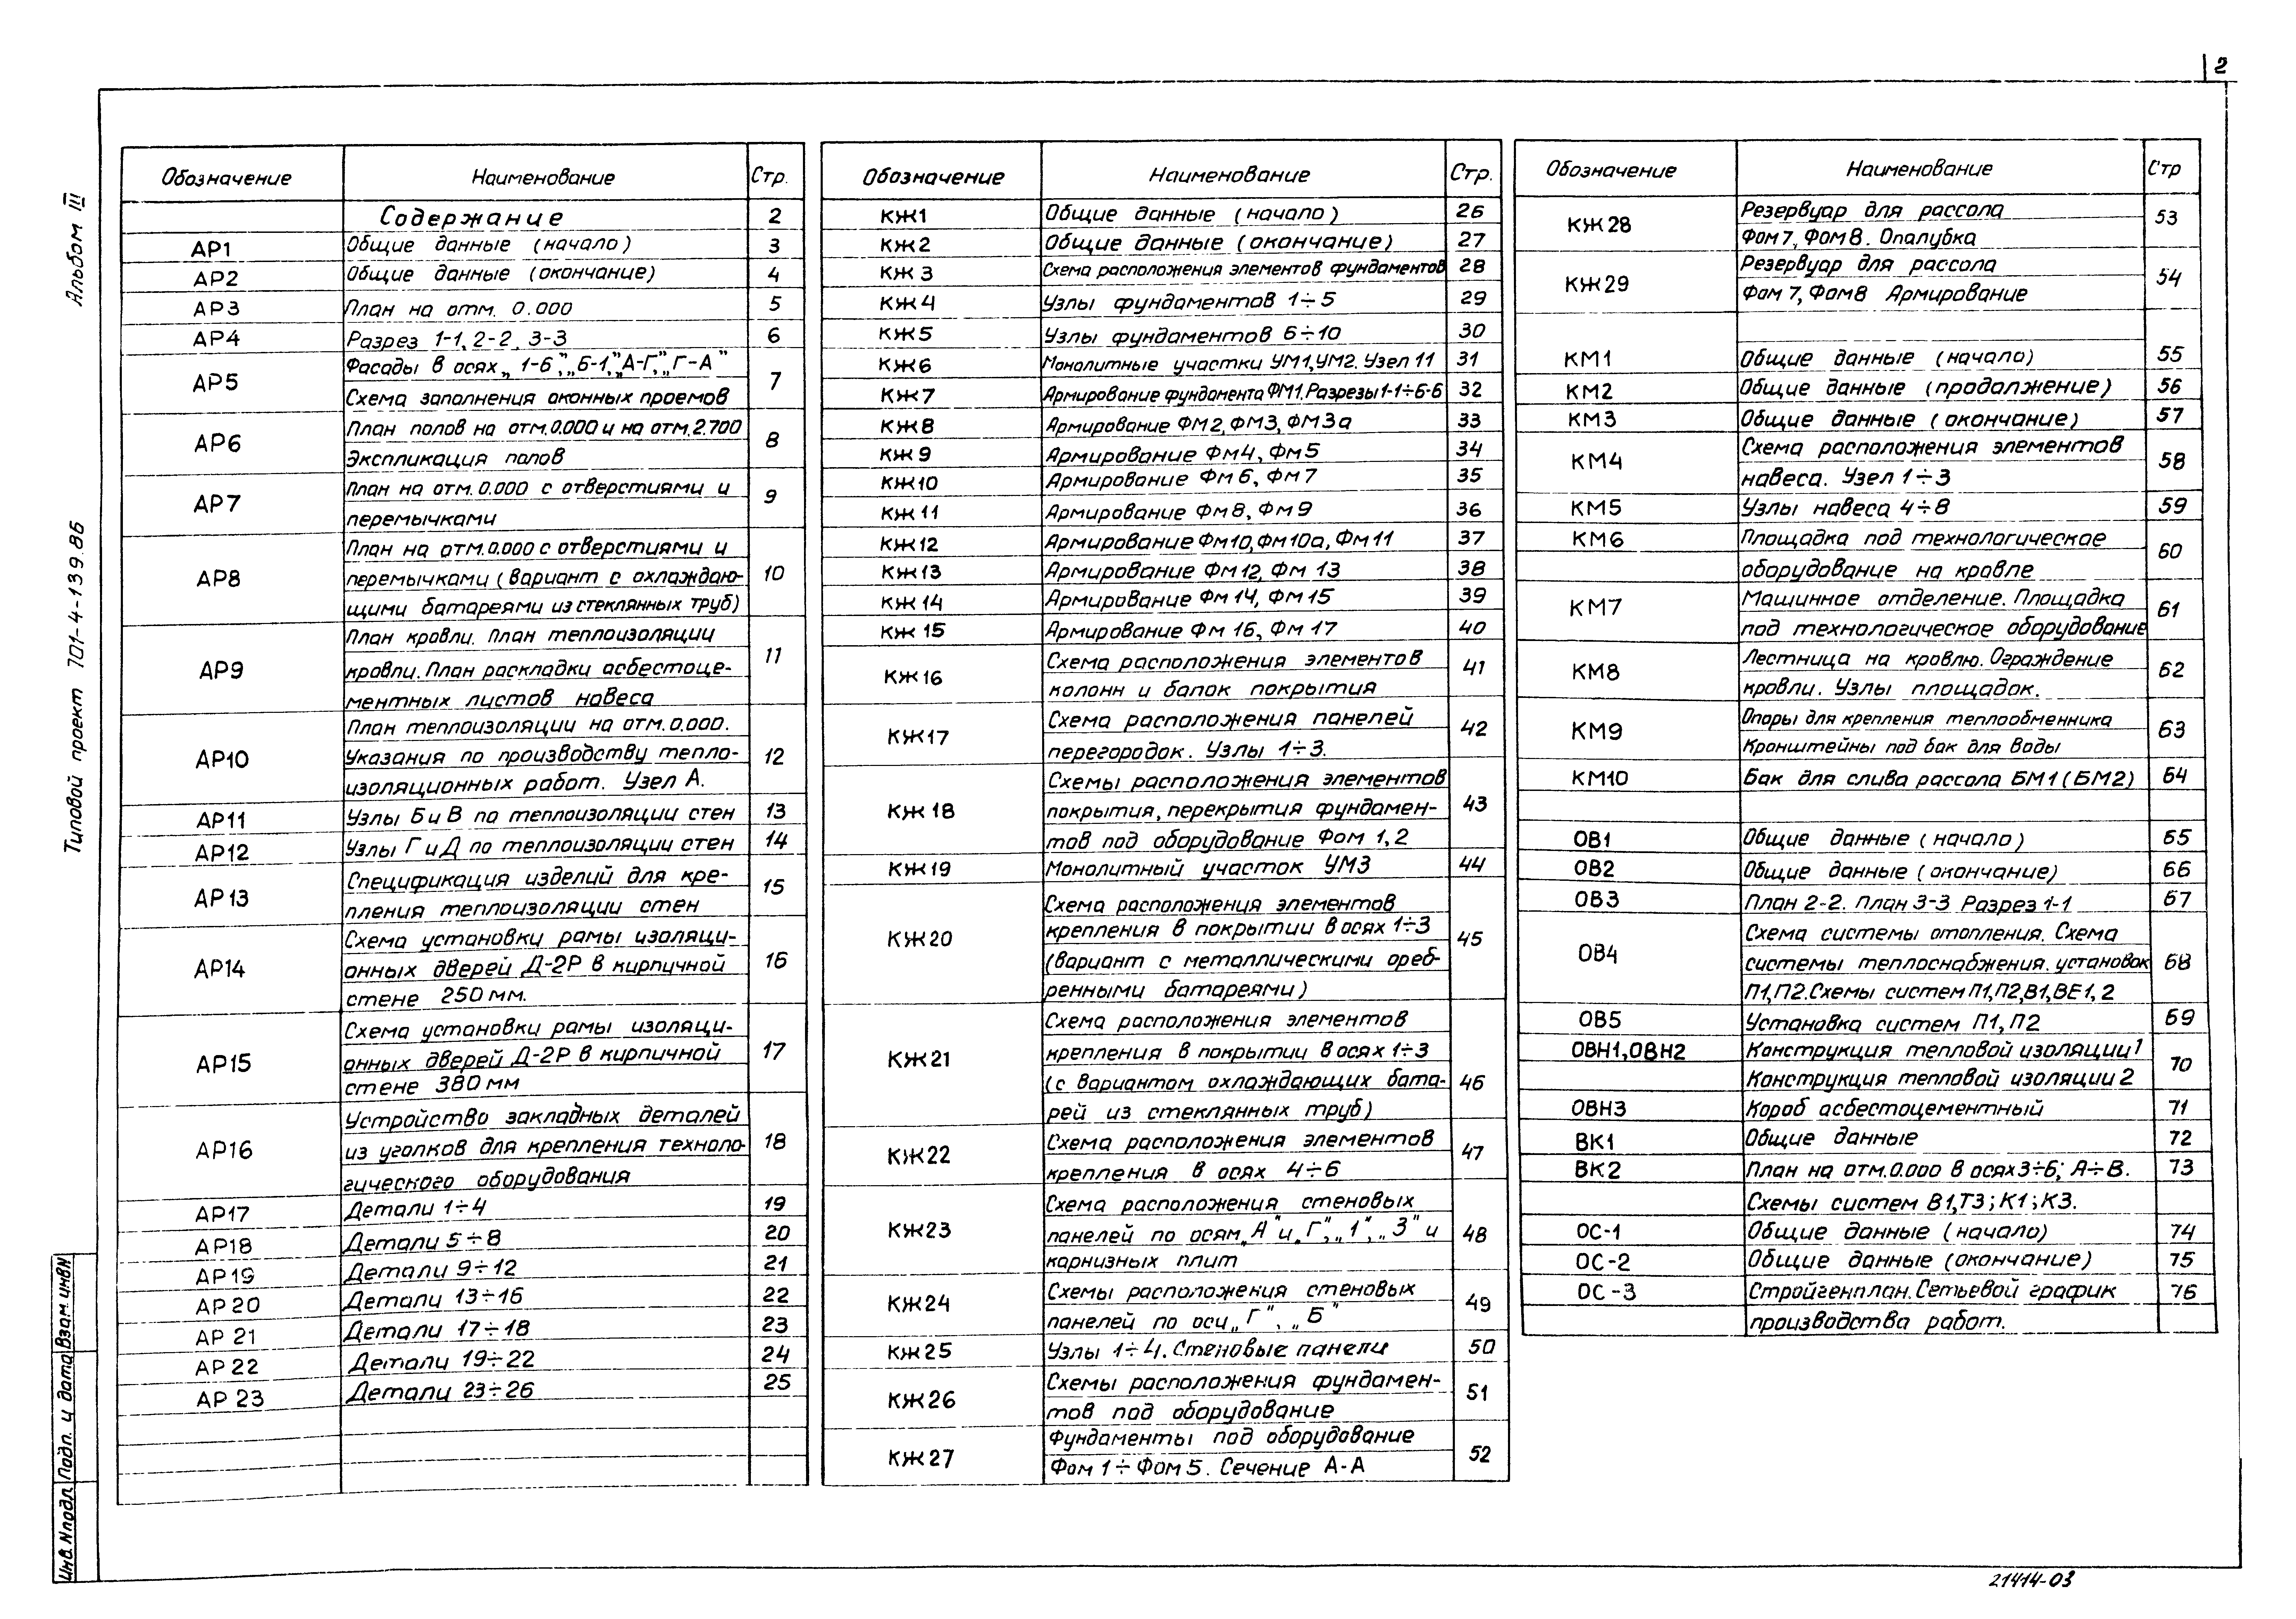 2
Альбом III
Типовой проект 701-4-139.86
Взам. инв N
Подп. и дата
Инв. N подл.
Обозначение Наименование Стр.
Содержание 2
АР1 Общие данные (начало) 3
АР2 Общие данные (окончание) 4
АР3 План на отм. 0.000 5
АР4 Разрез 1-1, 2-2, 3-3 6
АР5 Фасады в осях „1-6", „Б-1", „А-Г", „Г-А" 7
Схема заполнения оконных проемов
АР6 План полов на отм. 0.000 и на отм. 2.700 8
Экспликация полов
АР7 План на отм. 0.000 с отверстиями и 9
перемычками
АР8 План на отм. 0.000 с отверстиями и 10
перемычками (вариант с охлаждаю-
щими батареями из стеклянных труб)
АР9 План кровли. План теплоизоляции 11
кровли. План раскладки асбестоце-
ментных листов навеса
АР10 План теплоизоляции на отм. 0.000. 12
Указания по производству тепло-
изоляционных работ. Узел А.
АР11 Узлы Б и В по теплоизоляции стен 13
АР12 Узлы Г и Д по теплоизоляции стен 14
АР13 Спецификация изделий для кре- 15
пления теплоизоляции стен
АР14 Схема установки рамы изоляци- 16
онных дверей Д-2Р в кирпичной
стене 250 мм.
АР15 Схема установки рамы изоляци- 17
онных дверей Д-2Р в кирпичной
стене 380 мм
АР16 Устройство закладных деталей 18
из уголков для крепления техноло-
гического оборудования
АР17 Детали 1÷4 19
АР18 Детали 5÷8 20
АР19 Детали 9÷12 21
АР 20 Детали 13÷16 22
АР 21 Детали 17÷18 23
АР 22 Детали 19÷22 24
АР 23 Детали 23÷26 25
Обозначение Наименование Стр.
КЖ1 Общие данные (начало) 26
КЖ2 Общие данные (окончание) 27
КЖ 3 Схема расположения элементов фундаментов 28
КЖ4 Узлы фундаментов 1÷5 29
КЖ5 Узлы фундаментов 6÷10 30
КЖ6 Монолитные участки УМ1, УМ2. Узел 11 31
КЖ7 Армирование фундамента ФМ1. Разрезы 1-1÷6-6 32
КЖ8 Армирование ФМ2, ФМ3, ФМ3а 33
КЖ 9 Армирование Фм4, Фм5 34
КЖ10 Армирование Фм 6, Фм 7 35
КЖ 11 Армирование Фм 8, Фм 9 36
КЖ12 Армирование Фм10, Фм10а, Фм 11 37
КЖ13 Армирование Фм 12, Фм 13 38
КЖ 14 Армирование Фм 14, Фм 15 39
КЖ 15 Армирование Фм 16, Фм 17 40
КЖ16 Схема расположения элементов 41
колонн и балок покрытия
КЖ17 Схема расположения панелей 42
перегородок. Узлы 1÷3.
КЖ 18 Схемы расположения элементов 43
покрытия, перекрытия фундамен-
тов под оборудование Фом 1, 2
КЖ19 Монолитный участок УМ3 44
КЖ20 Схема расположения элементов 45
крепления в покрытии в осях 1÷3
(вариант с металлическими ореб-
ренными батареями)
КЖ21 Схема расположения элементов 46
крепления в покрытии в осях 1÷3
(с вариантом охлаждающих бата-
рей из стеклянных труб)
КЖ22 Схема расположения элементов 47
крепления в осях 4÷6
КЖ23 Схема расположения стеновых 48
панелей по осям „А" и „Г", „1", „3" и
карнизных плит
КЖ24 Схемы расположения стеновых 49
панелей по оси „Г", „Б"
КЖ25 Узлы 1÷4. Стеновые панели 50
КЖ26 Схемы расположения фундамен- 51
тов под оборудование
КЖ27 Фундаменты под оборудование 52
Фом 1÷Фом 5. Сечение А-А
Обозначение Наименование Стр
КЖ28 Резервуар для рассола 53
Фом 7, Фом 8. Опалубка
КЖ29 Резервуар для рассола 54
Фом 7, Фом8 Армирование
КМ1 Общие данные (начало) 55
КМ2 Общие данные (продалжение) 56
КМ3 Общие данные (окончание) 57
КМ4 Схема расположения элементов 58
навеса. Узел 1÷3
КМ5 Узлы навеса 4÷8 59
КМ6 Площадка под технологическое 60
оборудование на кровле
КМ7 Машинное отделение. Площадка 61
под технологическое оборудование
КМ8 Лестница на кровлю. Ограждение 62
кровли. Узлы площадок.
КМ9 Опоры для крепления теплообменника 63
Кронштейны под бак для воды
КМ10 Бак для слива рассола БМ1 (БМ2) 64
ОВ1 Общие данные (начало) 65
ОВ2 Общие данные (окончание) 66
ОВ3 План 2-2. План 3-3 Разрез 1-1 67
ОВ4 Схема системы отопления. Схема 68
системы теплоснабжения. установок
П1, П2. Схемы систем П1, П2, В1, ВЕ1, 2
ОВ5 Установка систем П1, П2 69
ОВН1, ОВН2 Конструкция тепловой изоляции 1 70
Конструкция тепловой изоляции 2
ОВН3 Короб асбестоцементный 71
ВК1 Общие данные 72
ВК2 План на отм. 0.000 в осях 3÷6; А÷В. 73
Схемы систем В1, Т3; К1; К3.
ОС-1 Общие данные (начало) 74
ОС-2 Общие данные (окончание) 75
ОС-3 Стройгенплан. Сетьевой график 76
производства работ.
21414-03